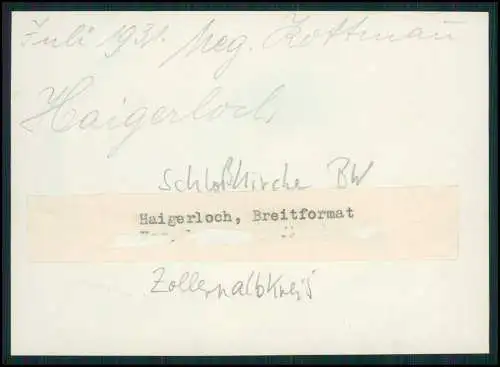 Juli 1931. Neg. Rottmau
Haigerloch
Schloßkirche BW
Haigerloch, Breitformat
Zollernalbkreis